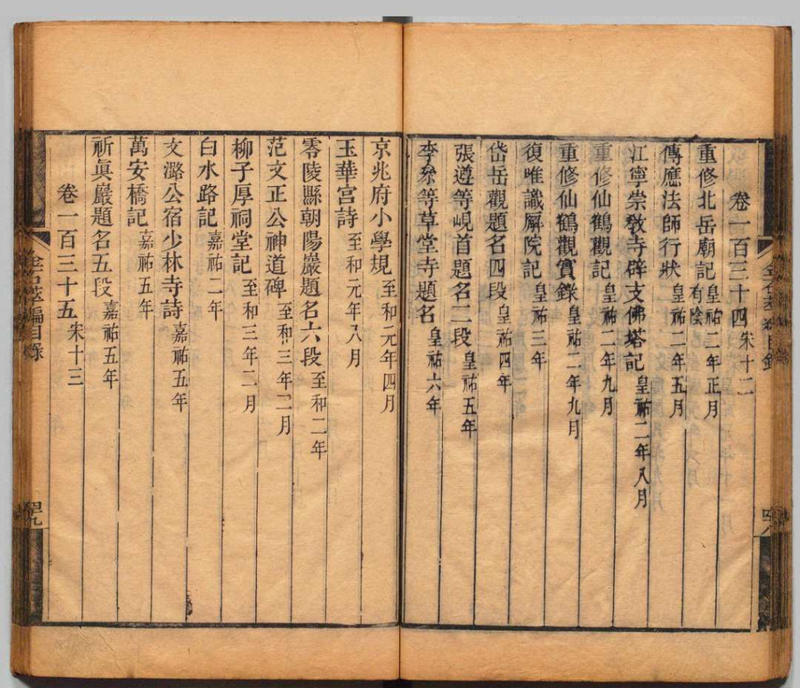 卷一百三十四 宋十二
重修北岳廟記 皇祐二年正月 有陰
傳應法師行狀 皇祐二年五月
江寧崇敎寺辟支佛塔記 皇祐二年八月
重修仙鶴觀記 皇祐二年九月
重修仙鶴觀實錄 皇祐二年九月
復唯識廨院記 皇祐三年
岱岳觀題名四段 皇祐四年
張遵等峴首題名二段 皇祐五年
李叅等草堂寺題名 皇祐六年
京兆府小學規 至和元年四月
玉華宮詩 至和元年八月
零陵縣朝陽巖題名六段 至和二年
范文正公神道碑 至和三年二月
柳子厚祠堂記 至和三年二月
白水路記 嘉祐二年
文潞公宿少林寺詩 嘉祐五年
萬安橋記 嘉祐五年
祈眞巖題名五段 嘉祐五年
卷一百三十五 宋十三
金石萃編目錄